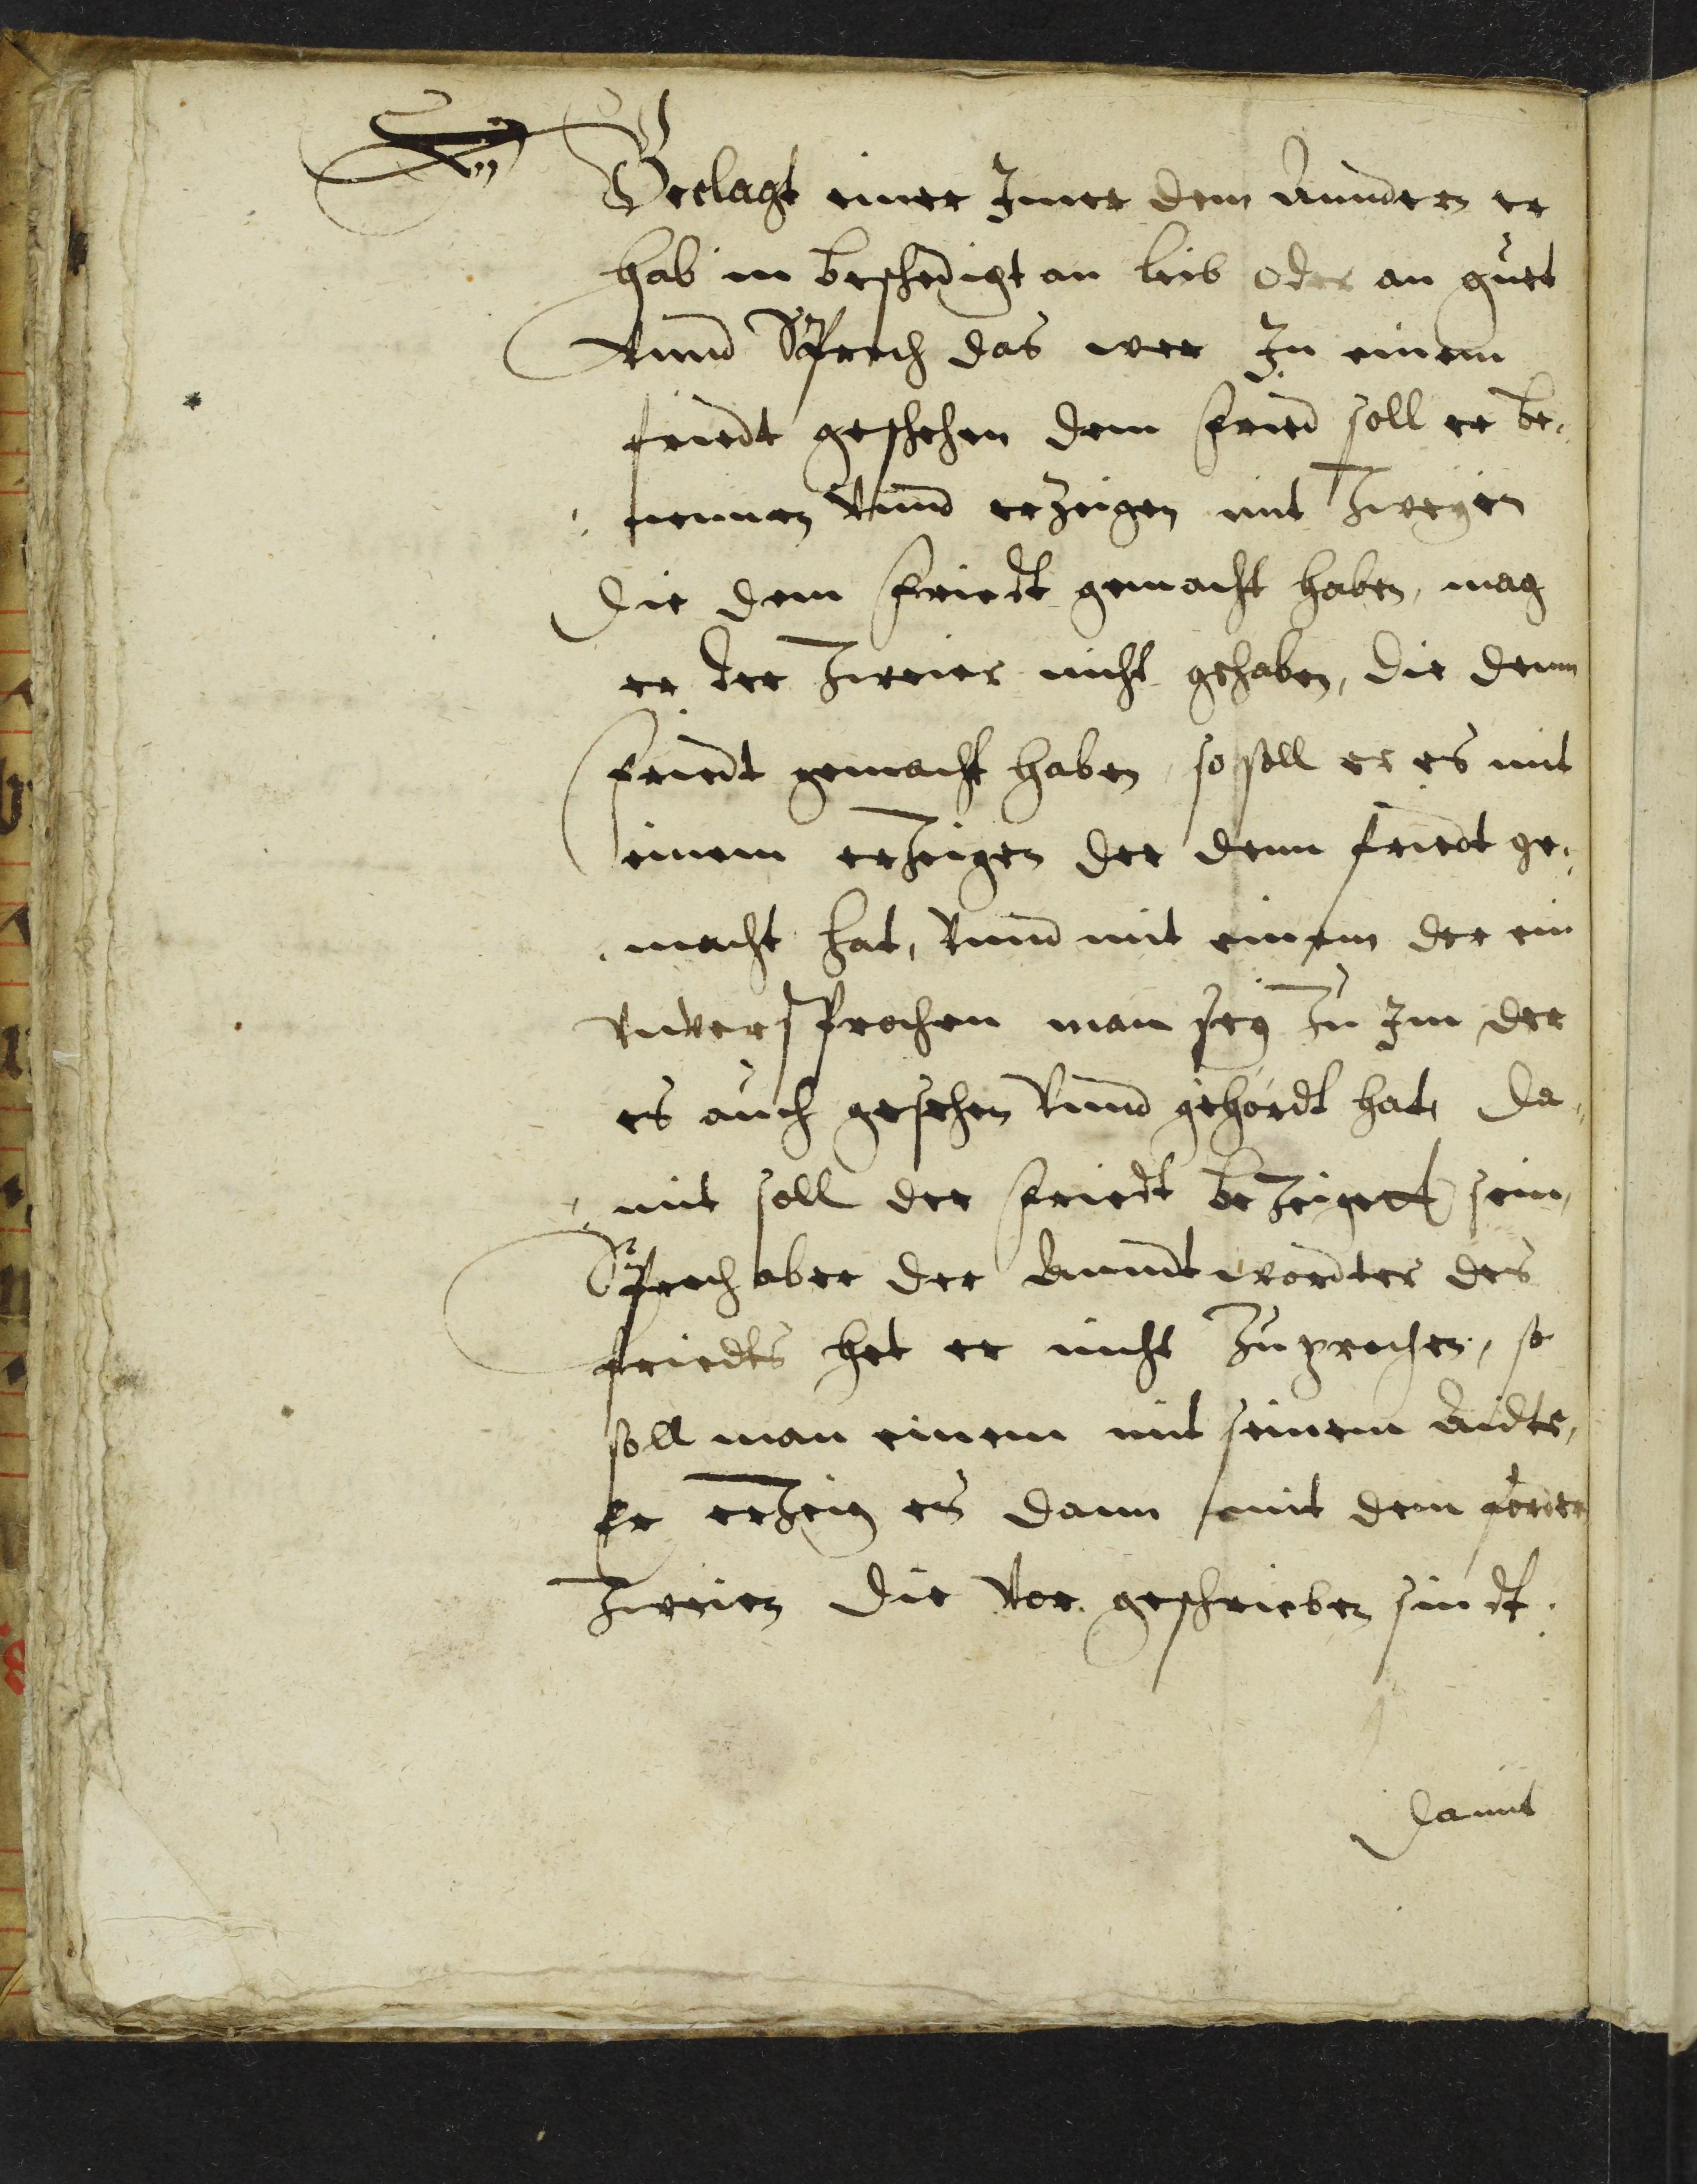 Beclagt einer Imer dem Anndern er
hab in beschedigt an leib oder an guet
Vnnd Sprech das wer In einem
friedt geschehen dem Fried soll er be-
nennen Vnnd erzeigen mit Zweyen
die dem Friedt gemacht haben, mag
er der Zweier nicht gehaben, die denn
Friedt gemacht haben, so soll er es mit
einem erzeigen der denn friedt ge-
macht hat, Vnnd mit einem der ein
Vnversprochen man sey Zu Im der
es auch gesehen Vnnd gehördt hat, Da-
mit soll der Friedt bezeigett sein,
Sprech aber der Anndtwordter des
friedts het er nicht Zuprochen, so
soll man einem mit seinem Aidte,
Er erzeig es dann mit dem
Zweien die Vor geschrieben sindt.
Damit